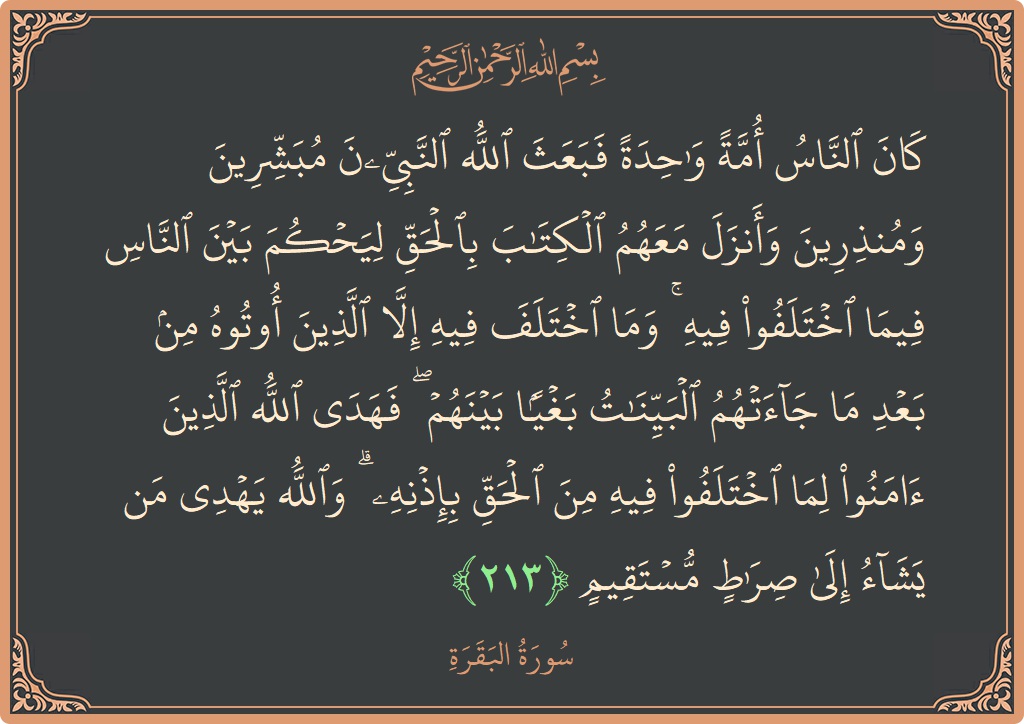 بِسْمِ اللَّهِ الرَّحْمَٰنِ الرَّحِيمِ
كَانَ ٱلنَّاسُ أُمَّةً وَٰحِدَةً فَبَعَثَ ٱللَّهُ ٱلنَّبِيِّـۧنَ مُبَشِّرِينَ
وَمُنذِرِينَ وَأَنزَلَ مَعَهُمُ ٱلْكِتَـٰبَ بِٱلْحَقِّ لِيَحْكُمَ بَيْنَ ٱلنَّاسِ
فِيمَا ٱخْتَلَفُوا۟ فِيهِ ۚ وَمَا ٱخْتَلَفَ فِيهِ إِلَّا ٱلَّذِينَ أُوتُوهُ مِنۢ
بَعْدِ مَا جَآءَتْهُمُ ٱلْبَيِّنَـٰتُ بَغْيًۢا بَيْنَهُمْ ۖ فَهَدَى ٱللَّهُ ٱلَّذِينَ
ءَامَنُوا۟ لِمَا ٱخْتَلَفُوا۟ فِيهِ مِنَ ٱلْحَقِّ بِإِذْنِهِۦ ۗ وَٱللَّهُ يَهْدِى مَن
يَشَآءُ إِلَىٰ صِرَٰطٍ مُّسْتَقِيمٍ ﴿٢١٣﴾
سُورَةُ البَقَرَةِ